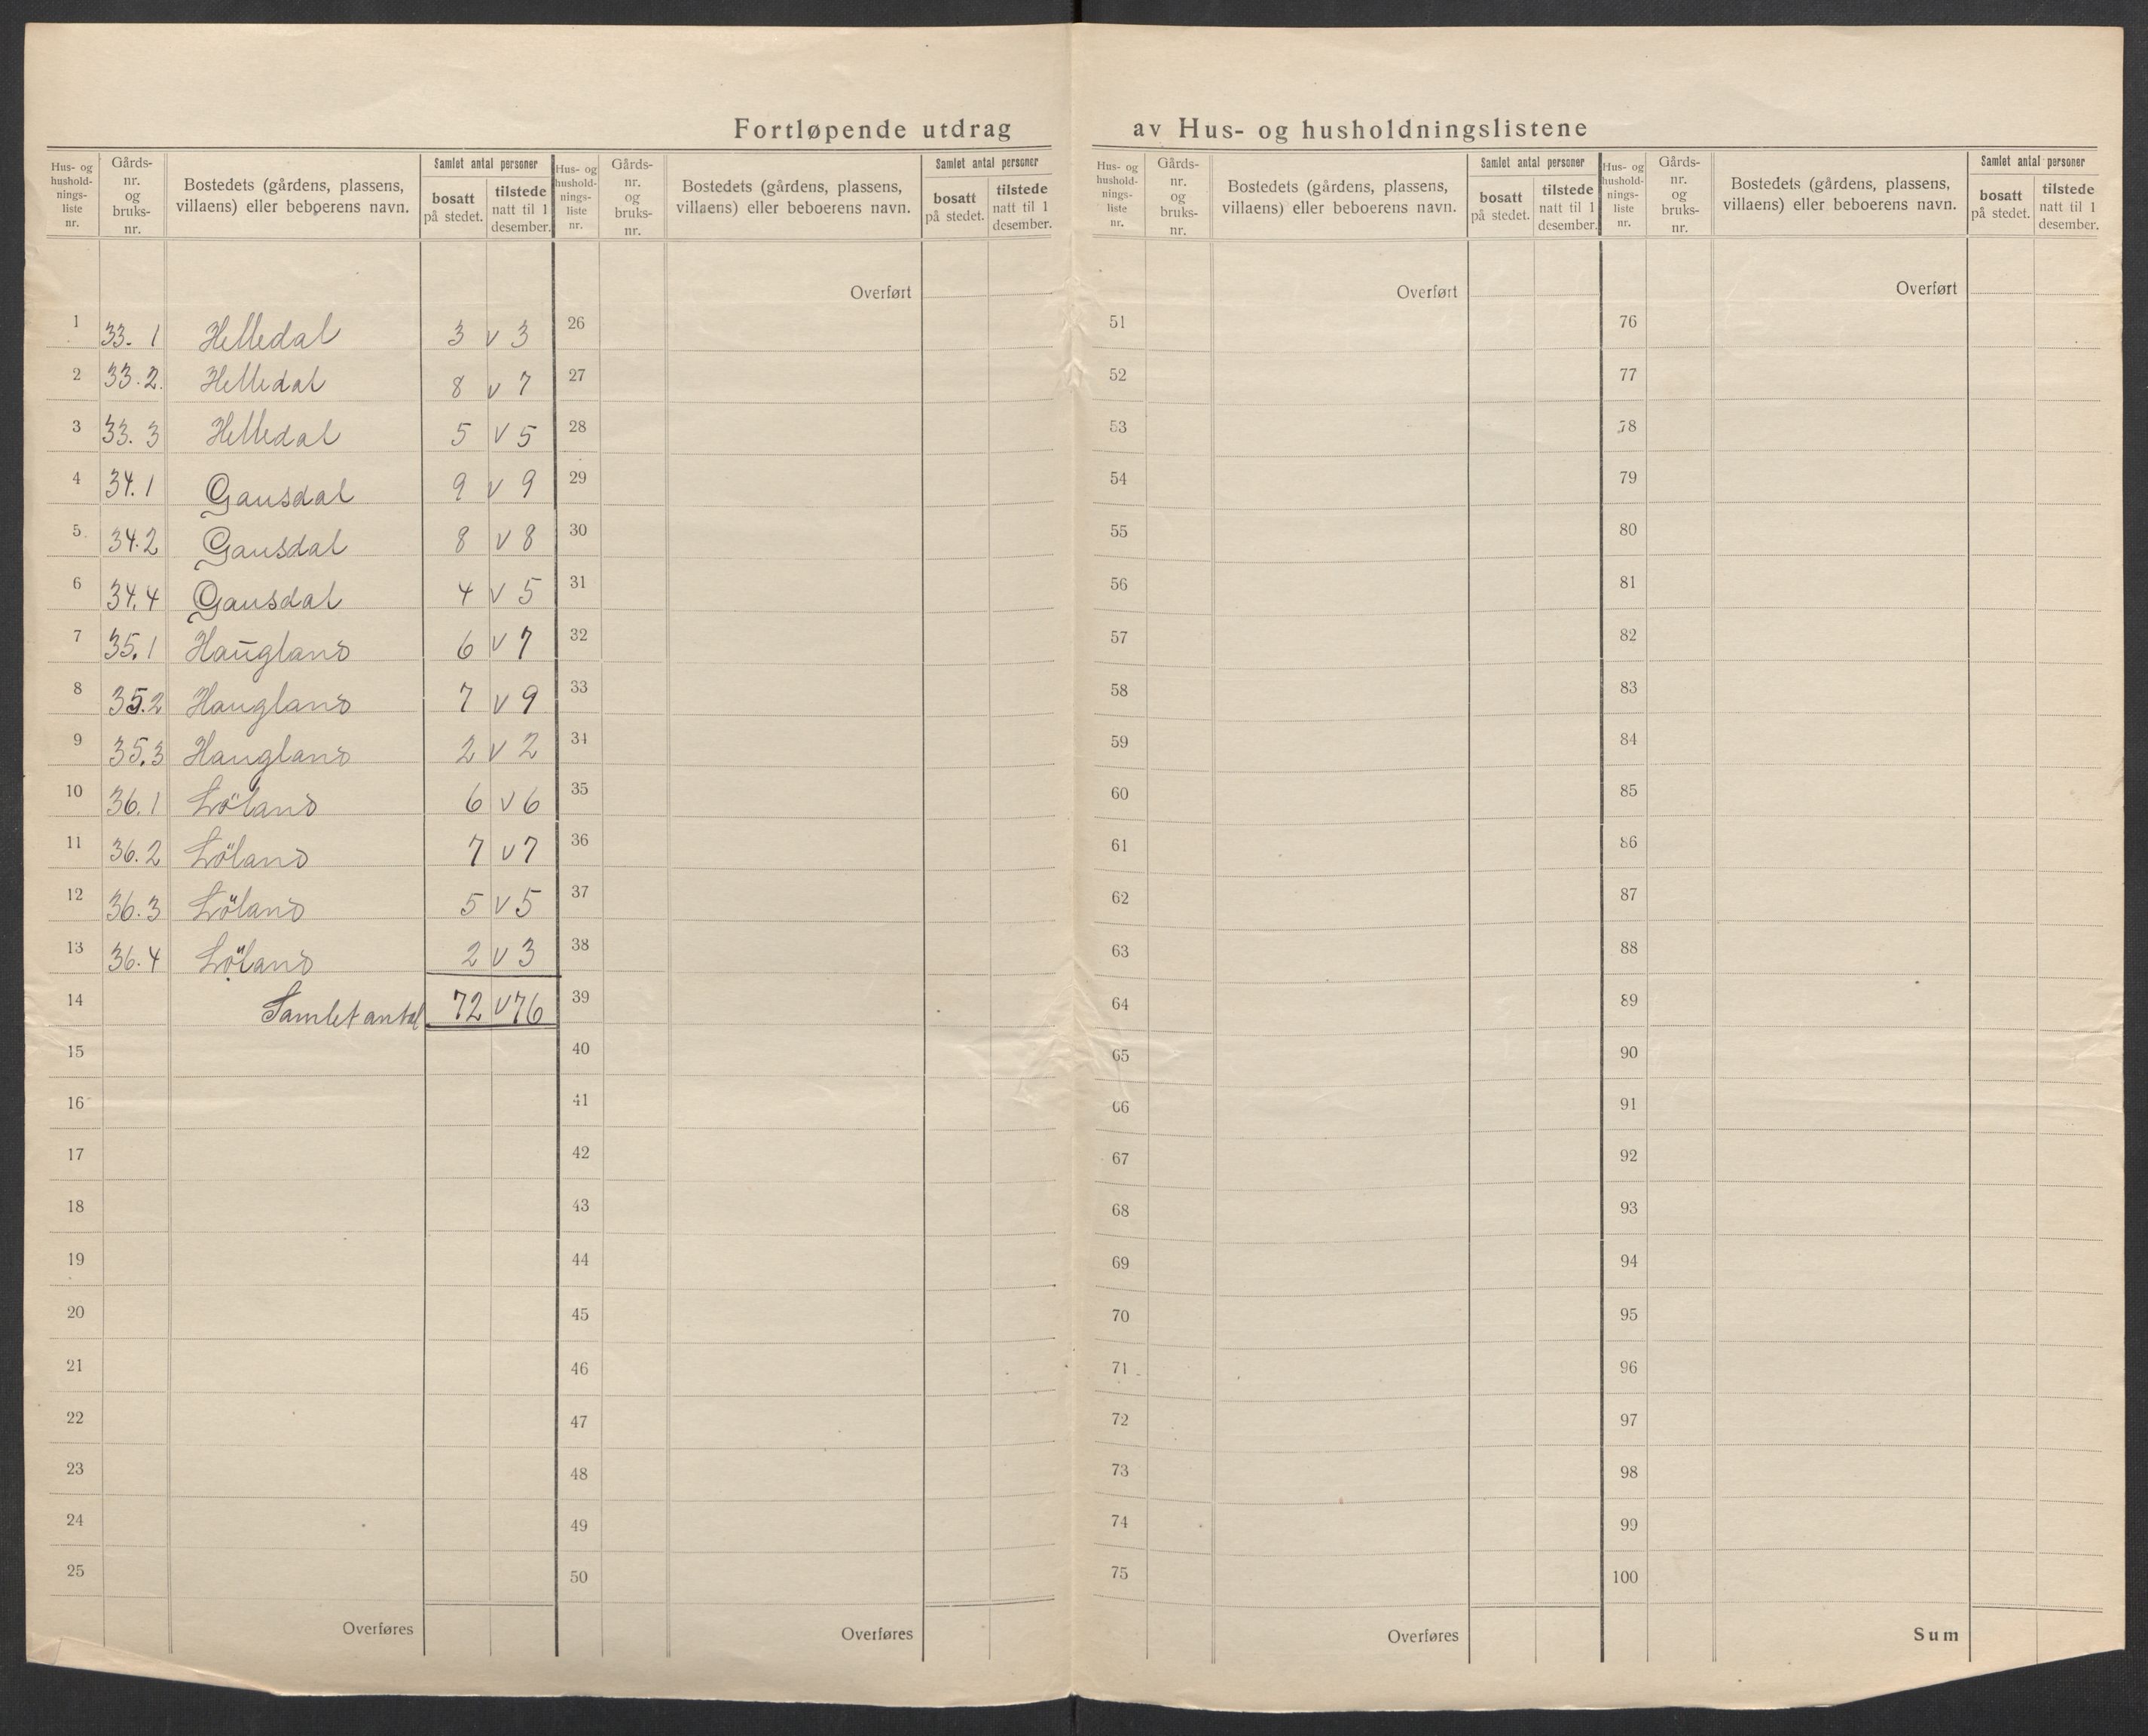 Fortløpende utdrag av Hus- og husholdningslistene
Hus- og hushold-nings-liste nr. Gårds-nr. og bruks-nr. Bostedets (gårdens, plassens, villaens) eller beboerens navn. Samlet antal personer bosatt på stedet. tilstede natt til 1 desember.
Hus- og hushold-nings-liste nr. Gårds-nr. og bruks-nr. Bostedets (gårdens, plassens, villaens) eller beboerens navn. Samlet antal personer bosatt på stedet. tilstede natt til 1 desember.
Hus- og hushold-nings-liste nr. Gårds-nr. og bruks-nr. Bostedets (gårdens, plassens, villaens) eller beboerens navn. Samlet antal personer bosatt på stedet. tilstede natt til 1 desember.
Hus- og hushold-nings-liste nr. Gårds-nr. og bruks-nr. Bostedets (gårdens, plassens, villaens) eller beboerens navn. Samlet antal personer bosatt på stedet. tilstede natt til 1 desember.
Overført Overført Overført
1 33. 1 Helledal 3 v 3 26 51 76
2 33. 2. Helledal 8 v 7 27 52 77
3 33. 3 Helledal 5 v 5 28 53 78
4 34. 1 Gausdal 9 v 9 29 54 79
5 34. 2 Gausdal 8 v 8 30 55 80
6 34. 4 Gausdal 4 v 5 31 56 81
7 35. 1 Haugland 6 v 7 32 57 82
8 35. 2 Haugland 7 v 9 33 58 83
9 35. 3 Haugland 2 v 2 34 59 84
10 36. 1 Löland 6 v 6 35 60 85
11 36. 2 Löland 7 v 7 36 61 86
12 36. 3 Löland 5 v 5 37 62 87
13 36. 4 Löland 2 v 3 38 63 88
14 Samlet antal 72 v 76 39 64 89
15 40 65 90
16 41 66 91
17 42 67 92
18 43 68 93
19 44 69 94
20 45 70 95
21 46 71 96
22 47 72 97
23 48 73 98
24 49 74 99
25 50 75 100
Overføres Overføres Overføres Sum